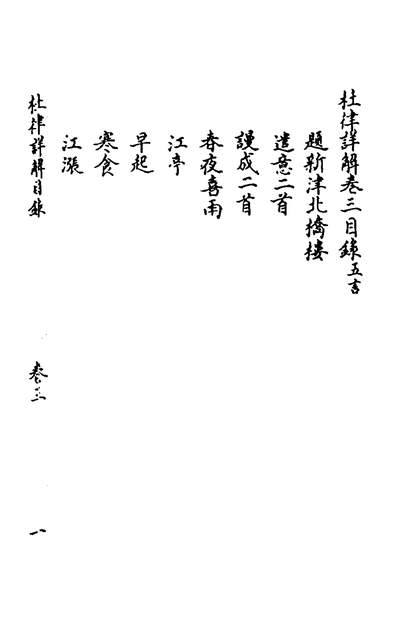 杜律詳解卷三目錄五言
題新津北橋樓
遣意二首
謾成二首
春夜喜雨
江亭
早起
寒食
江漲
杜律詳解目錄 卷三 一